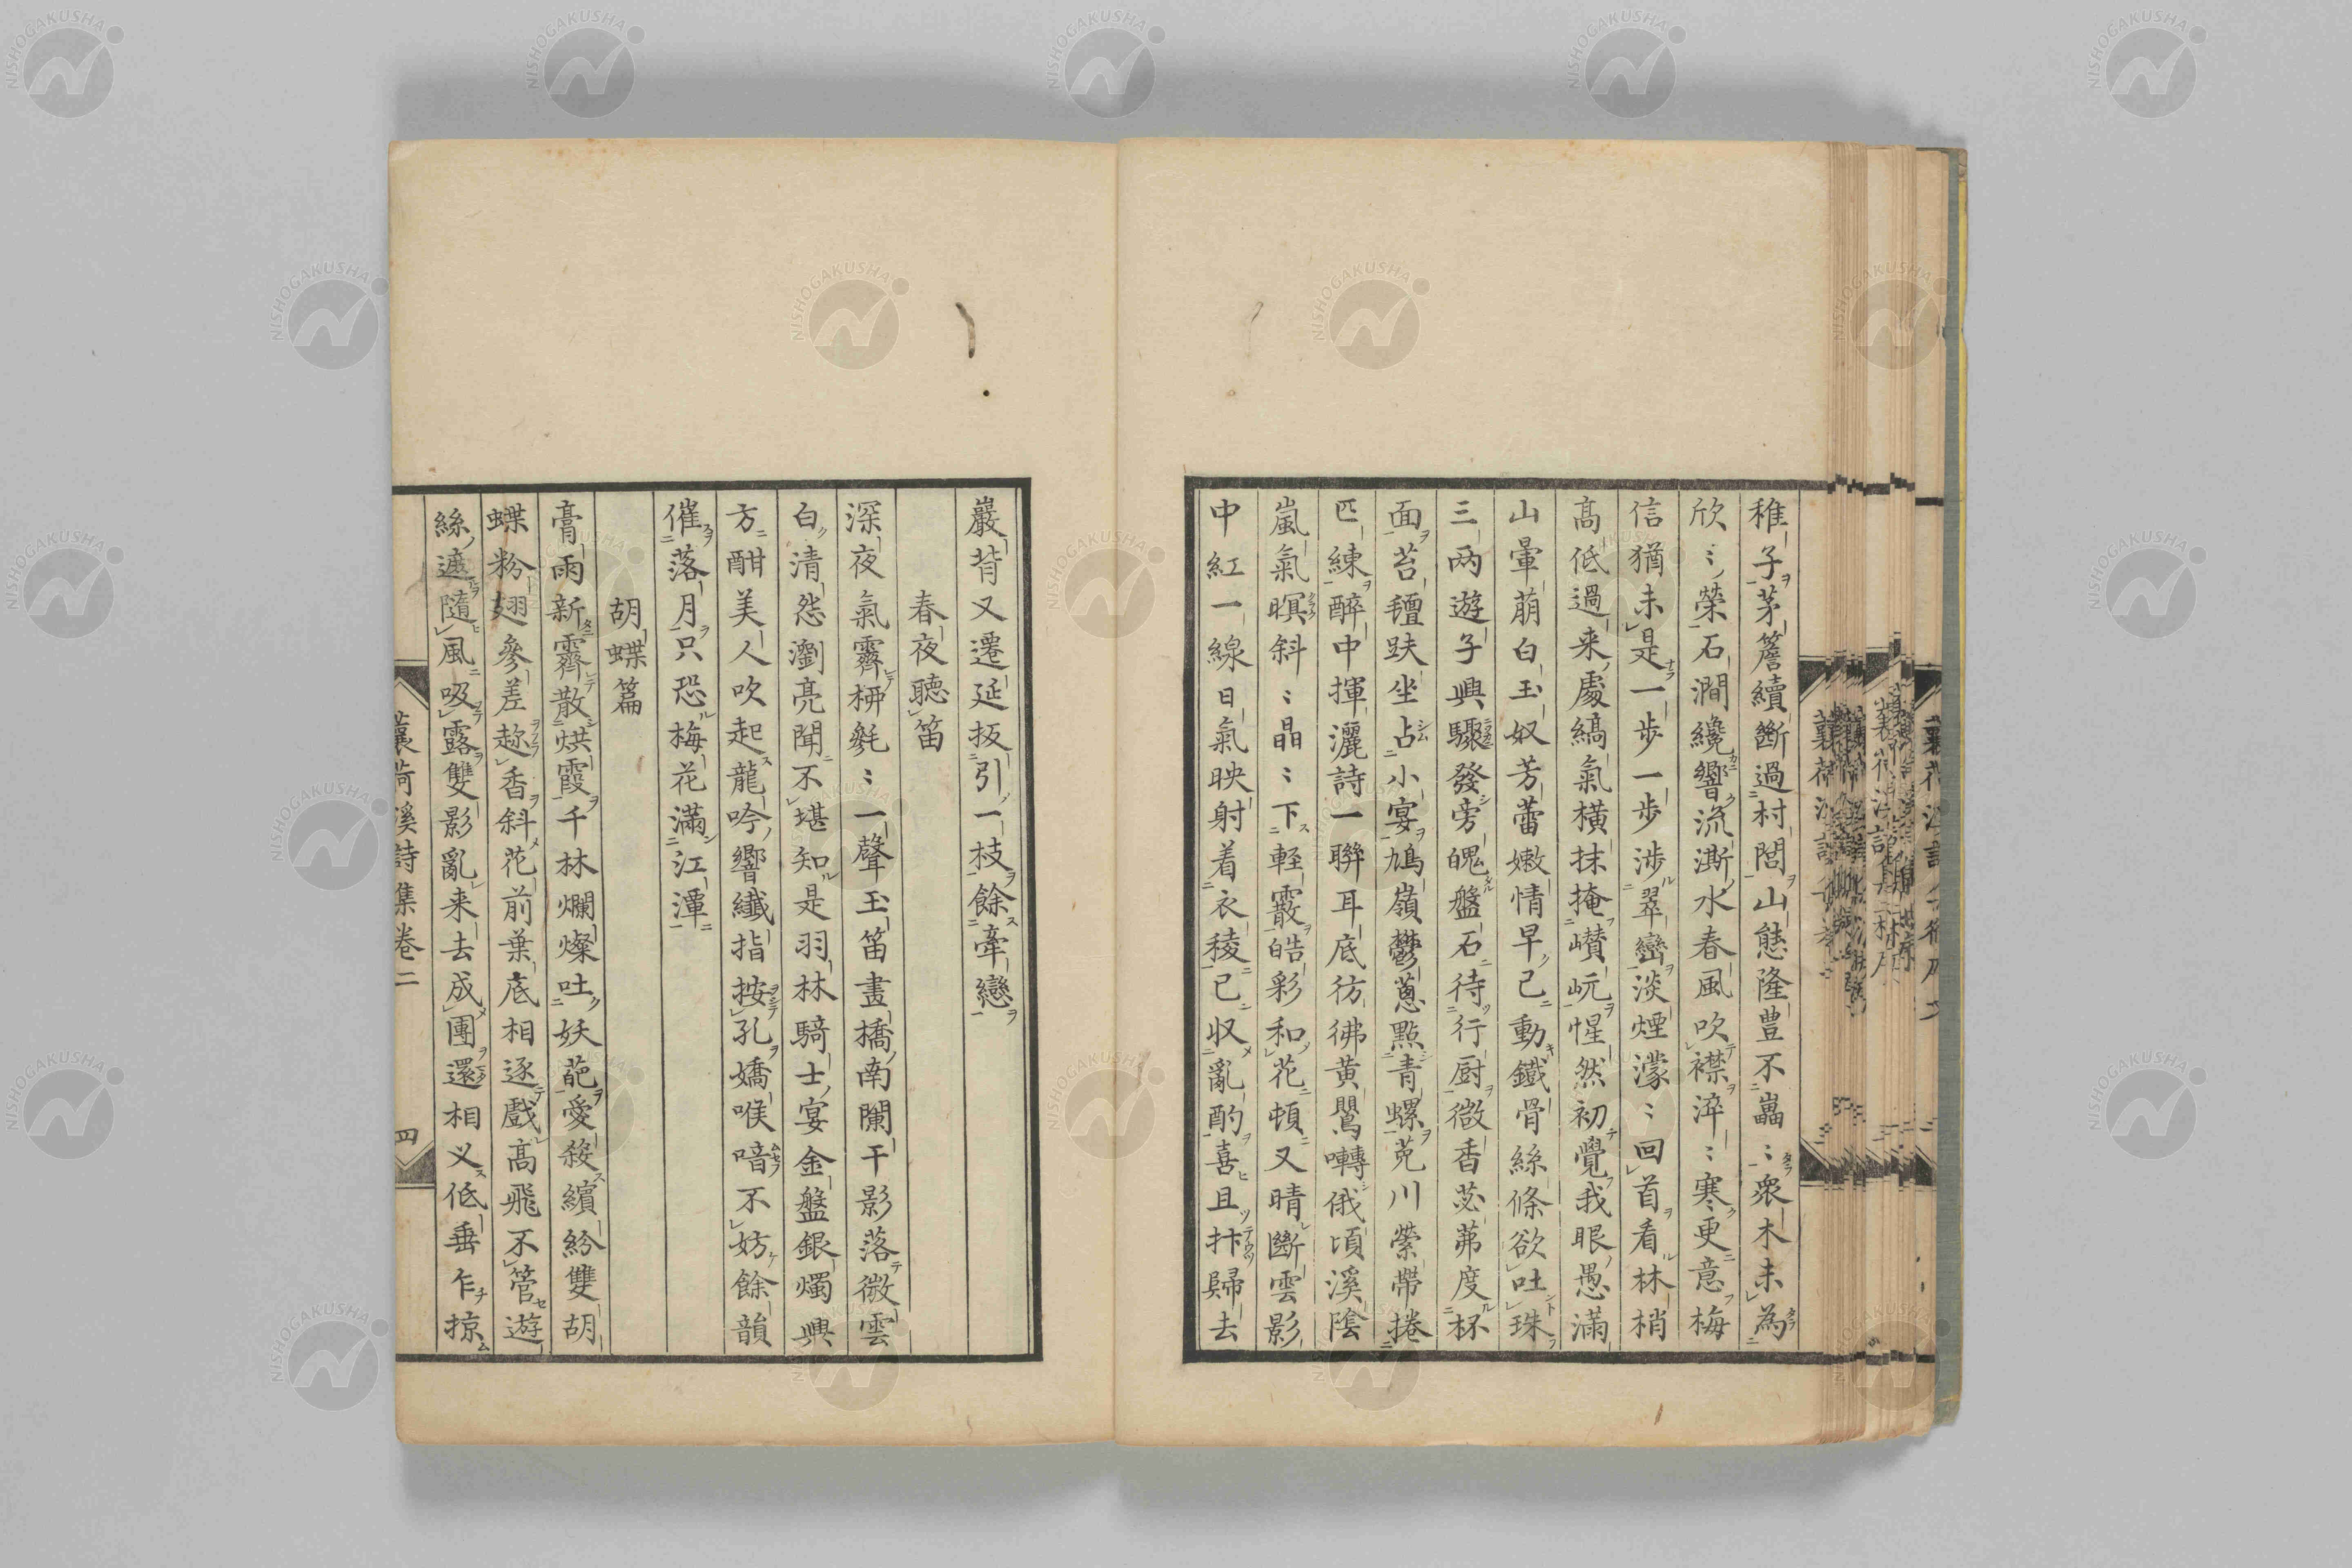 稚子茅簷續斷過村閭山態隆豊不巤〻衆木未為
欣〻榮石澗纔響流澌水春風吹襟淬〻寒更意梅
信猶未是一步一步渉翠巒淡煙濛〻回首看林梢
髙低過来處縞氣横抹掩巑岏惺然初覺我眼愚滿
山暈萠白玉奴芳蕾嫩情早已動鐵骨絲條欲吐珠
三両遊子興驟發旁磈盤石待行厨微香苾茀度杯
面苔氊趺坐占小宴鳩嶺鬱蔥點青螺菟川縈帶捲
匹練醉中揮灑詩一聯耳底彷彿黄鸎囀俄頃溪陰
嵐氣暝斜〻晶〻下軽霰皓彩和花頓又晴斷雲影
中紅一線日氣映射着衣稜已収亂酌喜且抃歸去
巖背又遷延扳引一枝餘牽戀
春夜聽笛
深夜氣霽栟毿〻一聲玉笛畫橋南闌干影落微雲
白清怨瀏亮聞不堪知是羽林騎士宴金盤銀燭興
方酣美人吹起龍吟響纖指按孔嬌喉喑不妨餘韻
催落月只恐梅花滿江潭
胡蝶篇
膏雨新霽散烘霞千林爛燦吐妖葩愛殺繽紛雙胡
蝶粉翅參差趂香斜花前葉底相逐戲髙飛不管遊
絲遮隨風吸露雙影亂来去成團還相义低垂乍掠
蘘荷溪詩集卷二
四